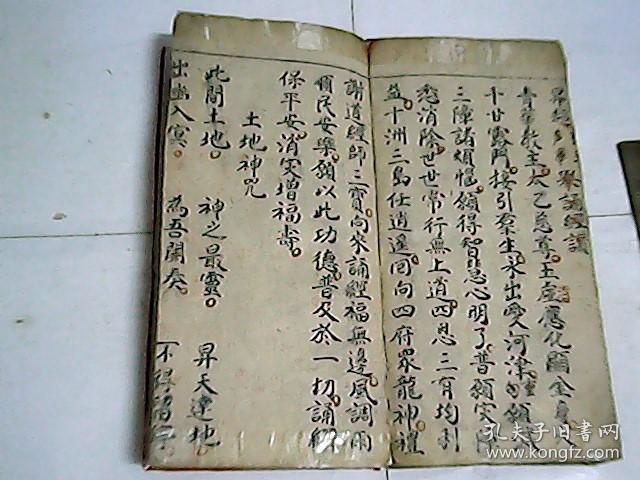 青華教主太乙慈尊玉虛應化
十甘露門接引羣生永出愛河津
三障諸煩惱願得智慧心明了普願灾
悉消除世世常行無上道四恩三有均利
益十洲三島任逍遥回向四府眾龍神禮
謝道經師三寶向來誦經福無邊風調雨
順民安樂願以此功德普及於一切誦
保平安消灾增福壽
土地神咒
此間土地 神之最靈 昇天達地
出幽入冥 為吾関奏 不得
孔夫子旧书网
www.kongfz.com